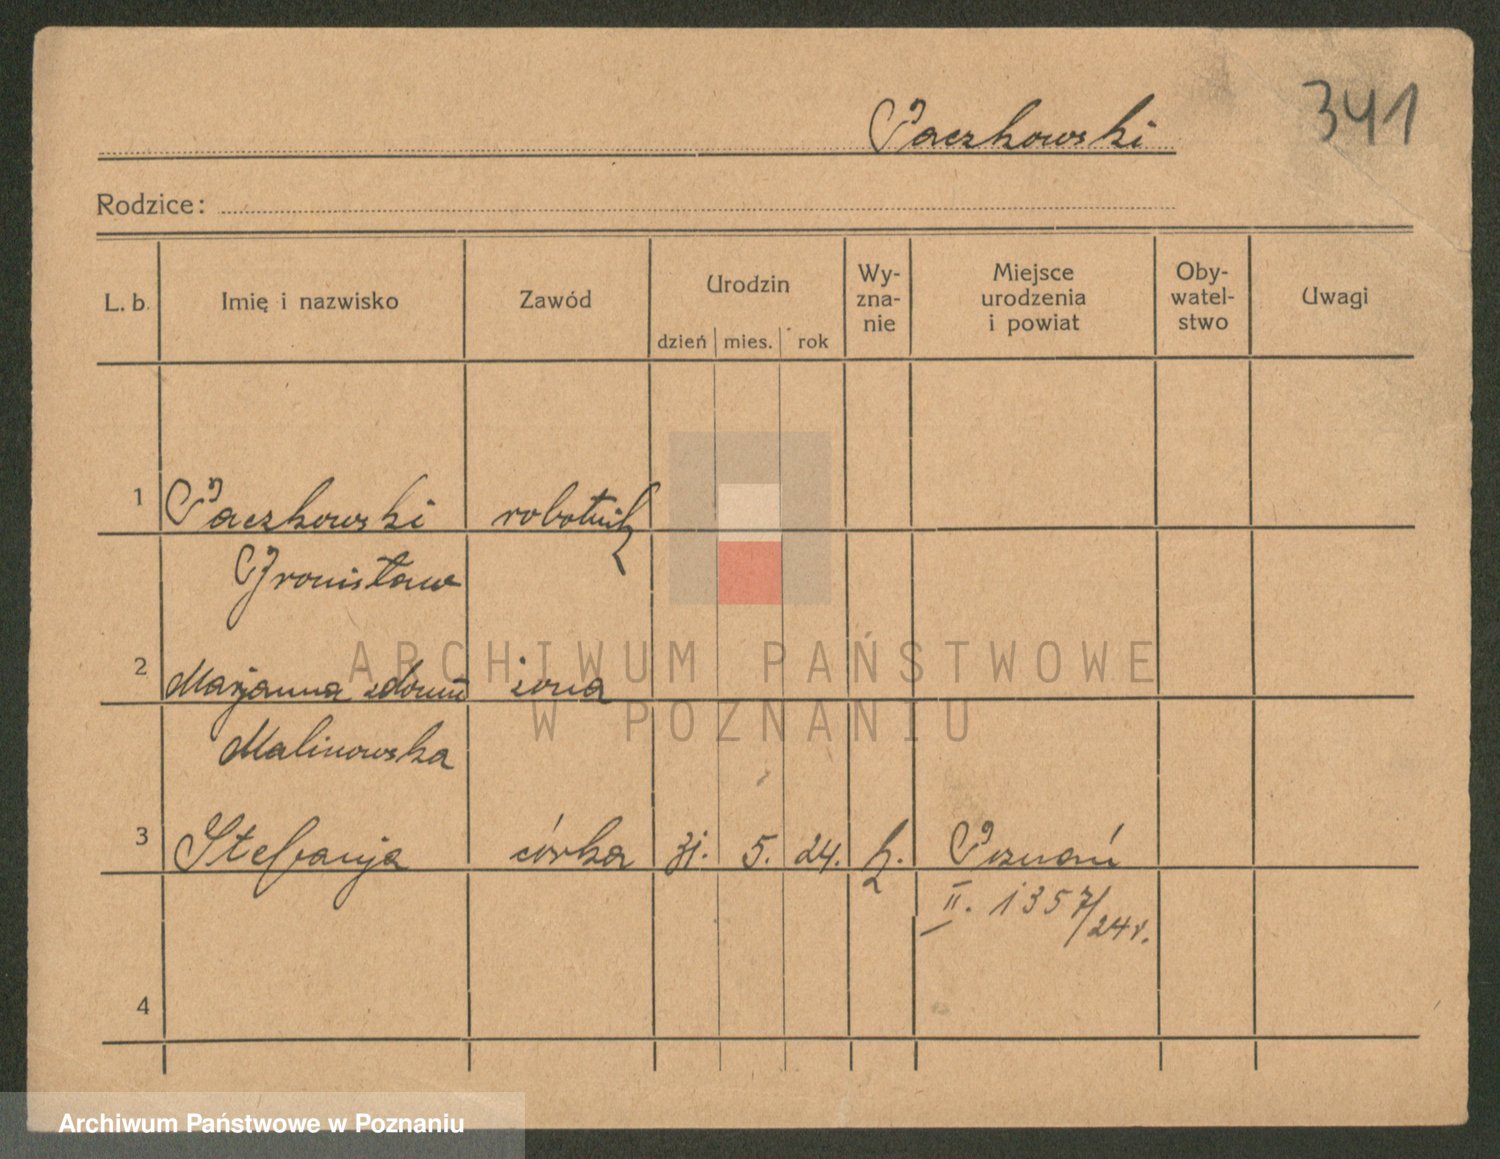 341
Paczkowski
Rodzice:
L. b. Imię i nazwisko Zawód Urodzin dzień mies. rok Wy-zna-nie Miejsce urodzenia i powiat Oby-watel-stwo Uwagi
1 Paczkowski robotnik
Bronisław
2 Marjanna zdomu żona
Malinowska
3 Stefanja córka 31. 5. 24. k. Poznań
II. 1357/24r.
4
ARCHIWUM PAŃSTWOWE
W POZNANIU
Archiwum Państwowe w Poznaniu